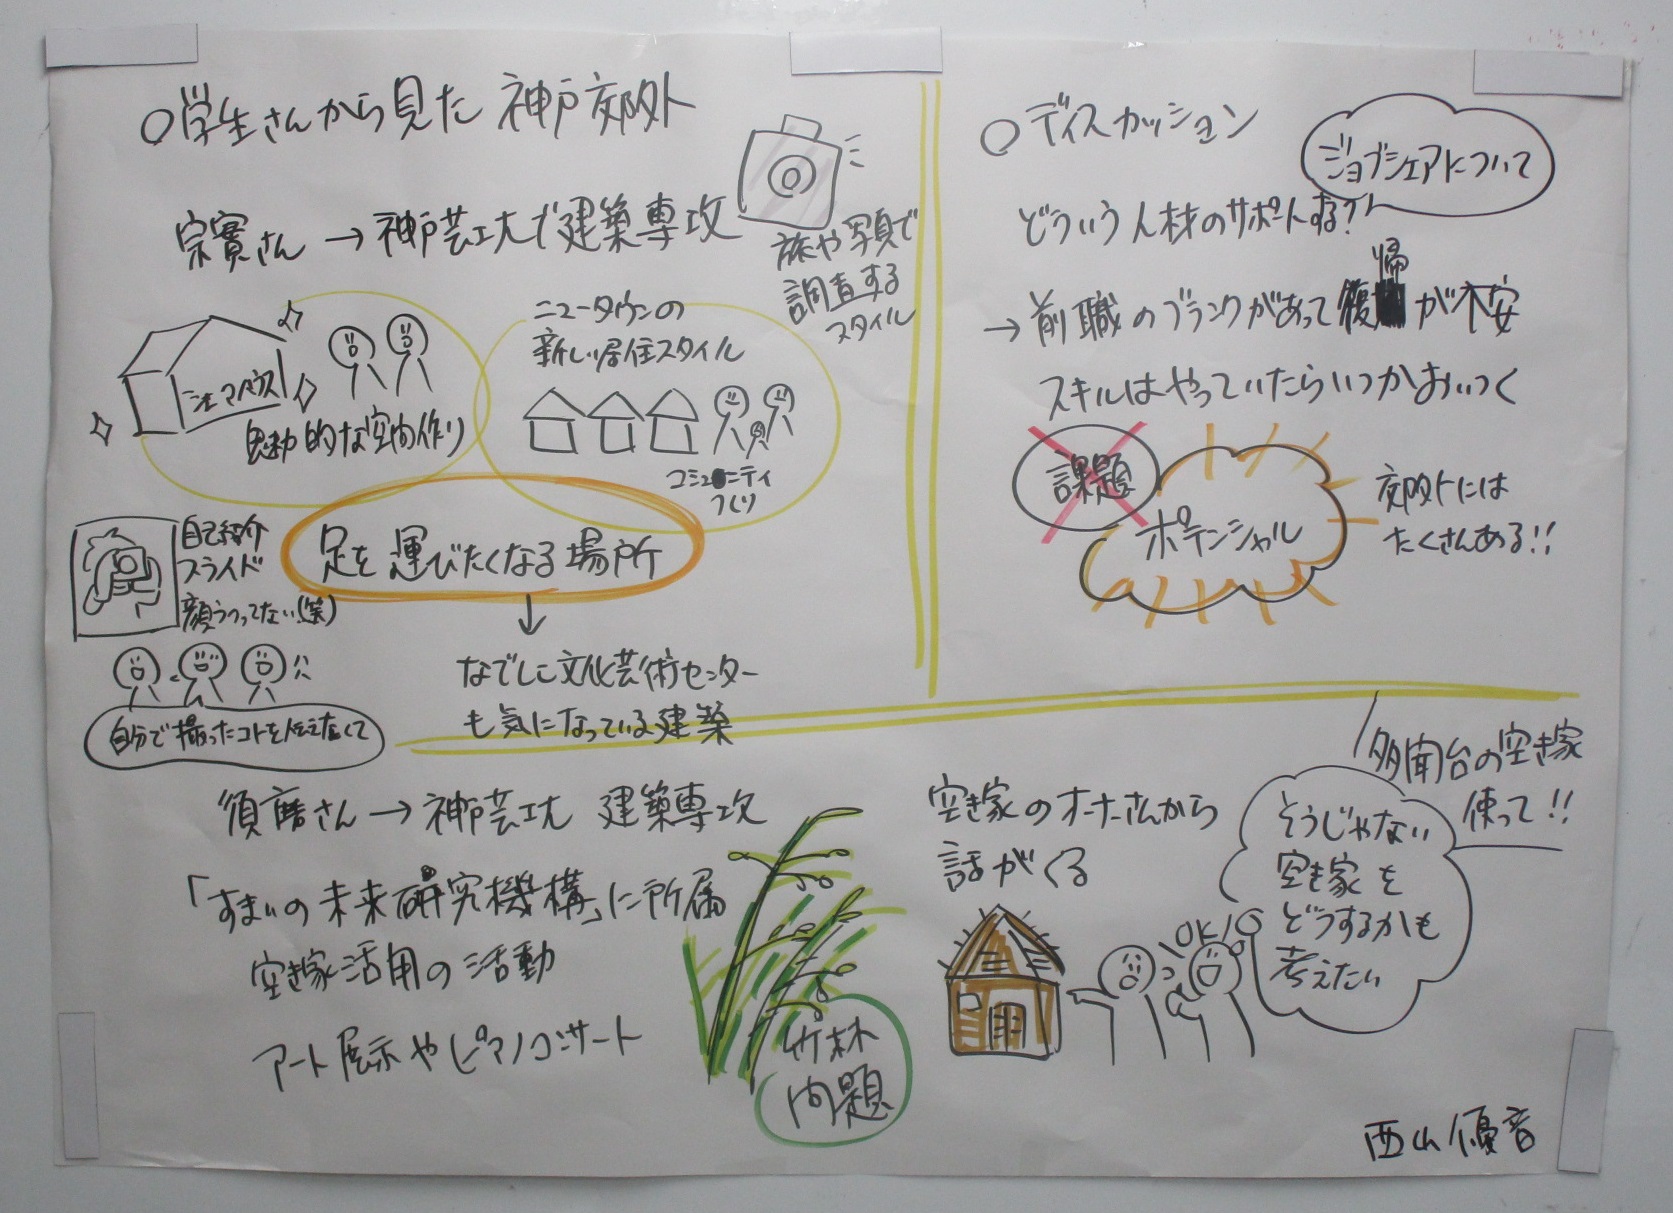 ○学生さんから見た 神戸郊外
宗實さん→神戸芸工大で建築専攻
旅や写真で
調査する
スタイル
シェアハウス
魅力的な空間作り
ニュータウンの
新しい居住スタイル
コミュニティ
つくり
足を運びたくなる場所
自己紹介
スライド
顔うつってない(笑)
自分で撮ったコトを伝えたくて
なでしこ文化芸術センター
も気になっている建築
須磨さん→神戸芸工大 建築専攻
「すまいの未来研究機構」に所属
空き家活用の活動
アート展示やピアノコンサート
竹林
問題
○ディスカッション
ジョブシェアについて
どういう人材のサポートする?
→前職のブランクがあって復帰が不安
スキルはやっていたらいつかおいつく
課題
ポテンシャル
郊外には
たくさんある!!
空き家のオーナーさんから
話がくる
OK!
多聞台の空き家
使って!!
そうじゃない
空き家を
どうするかも
考えたい
西山優音